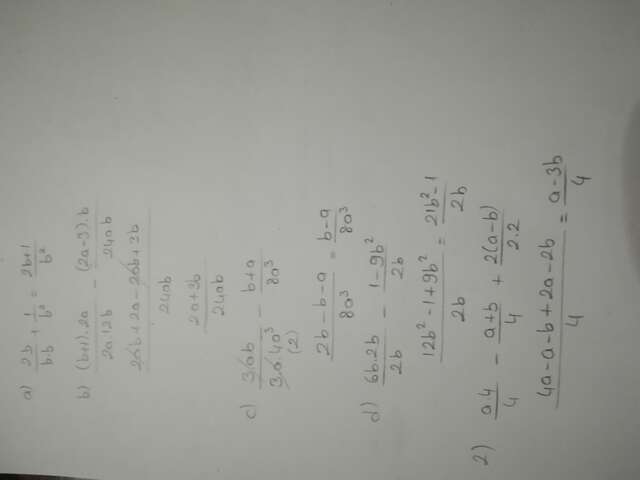 a) 2b/b·b + 1/b² = 2b+1/b²
b) (b+1)·2a/2a·12b − (2a−3)·b/24ab
2ab+2a−2ab+3b/24ab
2a+3b/24ab
c) 3ab/3a·4a³ − b+a/8a³
(2)
2b−b−a/8a³ = b−a/8a³
d) 6b·2b/2b − 1−9b²/2b
12b²−1+9b²/2b = 21b²−1/2b
2) a·4/4 − a+b/4 + 2(a−b)/2·2
4a−a−b+2a−2b/4 = a−3b/4